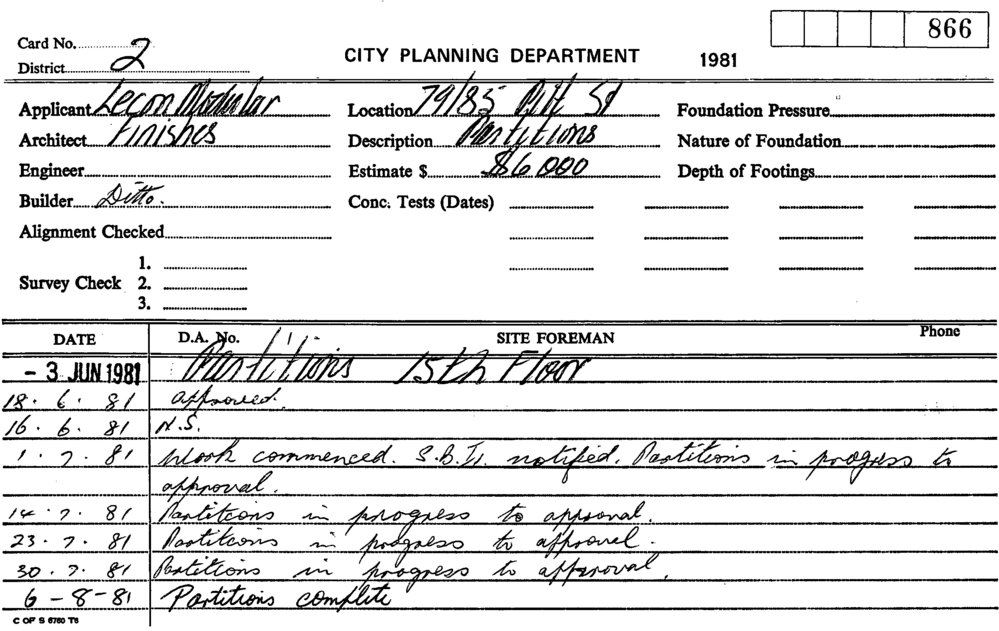 866
Card No. 2
District
CITY PLANNING DEPARTMENT 1981
Applicant Lecon Modular Location 79/85 Pitt St Foundation Pressure
Architect Finishes Description Partitions Nature of Foundation
Engineer Estimate $ $6000 Depth of Footings
Builder Ditto. Conc. Tests (Dates)
Alignment Checked
1.
Survey Check 2.
3.
DATE D.A. No. SITE FOREMAN Phone
- 3 JUN 1981 Partitions 15th Floor
18. 6. 81 approved.
16. 6. 81 N.S.
1. 7. 81 Work commenced. S.B.I. notified. Partitions in progress to
approval.
14. 7. 81 Partitions in progress to approval.
23. 7. 81 Partitions in progress to approval.
30. 7. 81 Partitions in progress to approval.
6 - 8 - 81 Partitions complete
C OF S 6760 T6